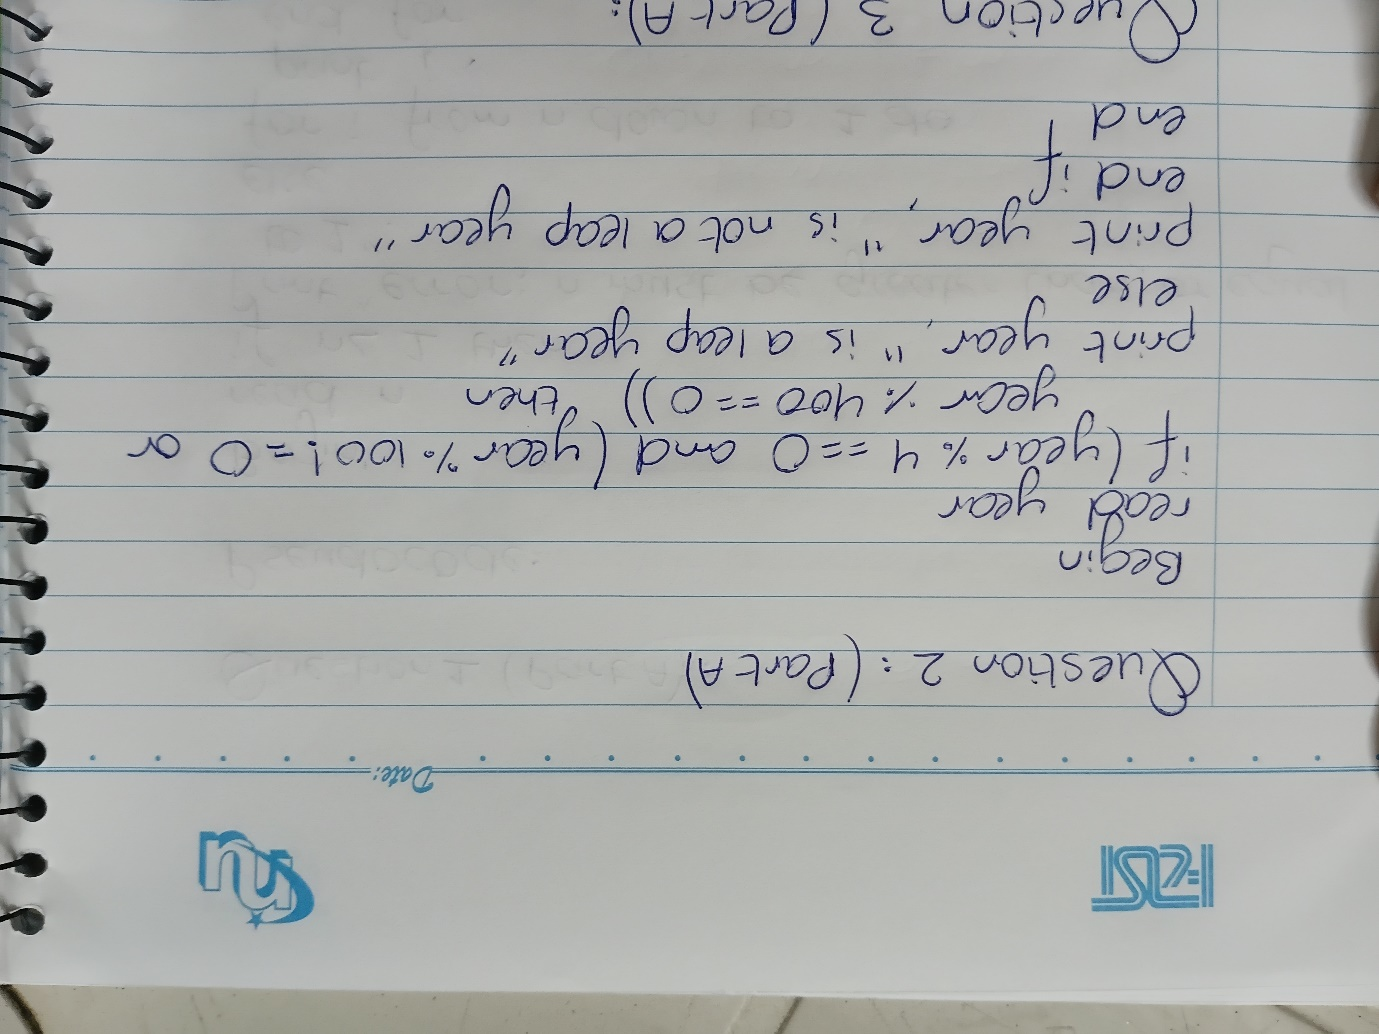 Date:
Question 2: (Part A)
Begin
read year
if (year % 4 == 0 and (year % 100 != 0 or
year % 400 == 0)) then
print year, "is a leap year"
else
print year, "is not a leap year"
end if
end
Question 3 (Part A):